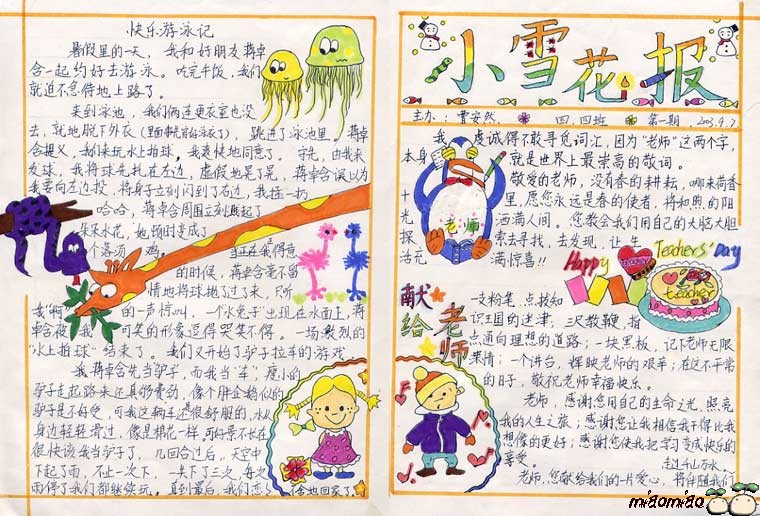 快乐游泳记
暑假里的一天，我和好朋友蒋卓
含一起约好去游泳。吃完午饭，我们
就迫不急待地上路了。
来到泳池，我们俩连更衣室也没
去，就地脱下外衣（里面事先有泳衣了），跳进了泳池里。蒋卓
含提义，我们来玩水上拍球，我爽快地同意了。守先，由我来
发球，我将球先扎在左边，虚假地晃了晃，蒋卓含误以为
我要向左边投，将身子立刻闪到了右边，我猛一扔
哈哈，蒋卓含周围立刻溅起了
朵朵水花，她顿时变成了
个落汤鸡。当正在我得意
的时候，蒋卓含毫不留
情地将球抛了过了来，只听
我"啊"的一声惊叫，一个水兔子"出现在水面上，蒋
卓含被我可笑的形象逗得哭笑不得。一场激烈的
"水上拍球"结束了。我们又开始了驴子拉车的游戏
我蒋卓含先当驴子，而我当"车"，瘦小的
驴子走起路来还真够费劲，像个胖企鹅似的
驴子是不好受，可我这辆车还很舒服的，水从
身边轻轻滑过，像是棉花一样，可好景不长在
很快该我当驴子了，几回合过后，天空中
下起了雨，不止一次下，一共下了三次，每次
雨停了我们都继续玩。直到最后，我们恋
舍地回家了
小雪花报
主办：曹安然 四.四班 第一期 2003.9.7
我虔诚得不敢寻觅词汇，因为"老师"这两个字，
本身就是世界上最崇高的敬词。
敬爱的老师，没有春的耕耘，哪来荷香
十里，愿您永远是春的使者，将和煦的阳
光洒满人间。您教会我们用自己的大脑大胆
探索去寻找，去发现，让生
活充满惊喜！！
老师
Happy Teachers' Day
teacher
献给老师
一支粉笔，点拨知
识王国的迷津；三尺教鞭，指
点通向理想的道路；一块黑板，记下老师无限
果情；一个讲台，辉映老师的艰辛；在这不平常
的日子，敬祝老师幸福快乐。
老师，感谢您用自己的生命之光，照亮
我的人生之旅；感谢您让我相信我干得比我
想像的更好；感谢您使我把学习变成快乐的
享受。
老师，您献给我们的一片爱心，将伴随我们
赴千山万水。
miaomiao